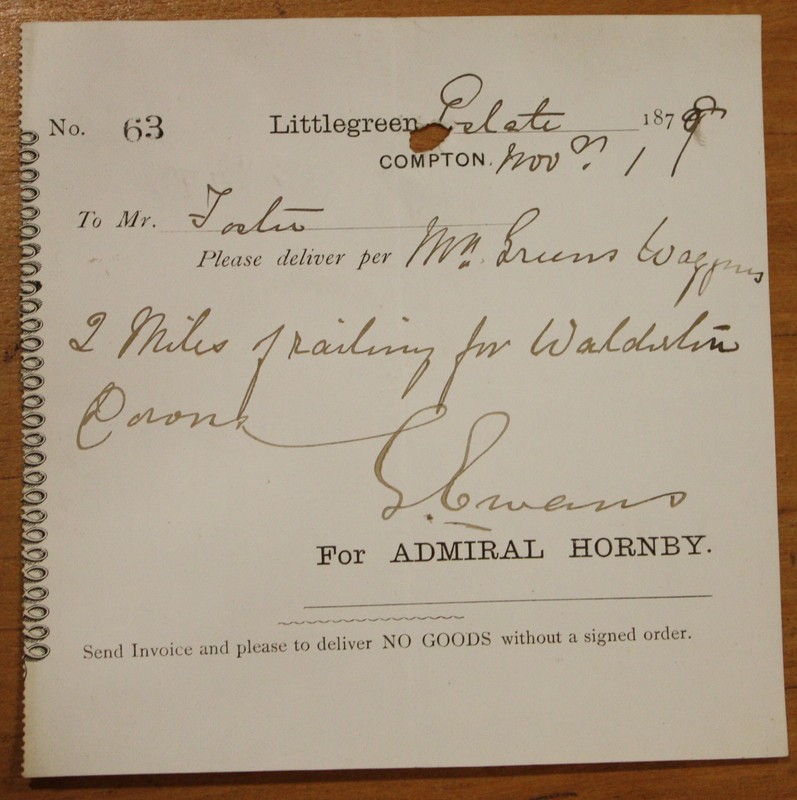 No. 63 Littlegreen Estate 1879
COMPTON. Novr. 1
To Mr. Foster
Please deliver per Mr. Greens Waggons
2 Miles of railing for Walderton
Downs
G. Ewans
For ADMIRAL HORNBY.
Send Invoice and please to deliver NO GOODS without a signed order.